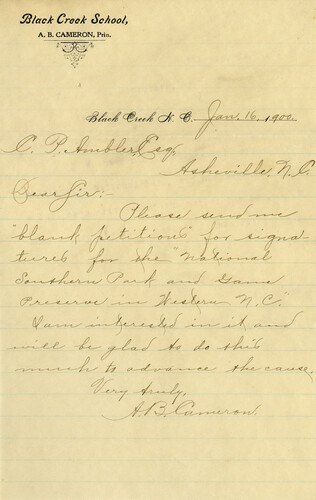 Black Creek School,
A. B. CAMERON, Prin.
Black Creek N. C. Jan. 16, 1900.
C. P. Ambler, Esq,
Asheville, N.C.
Dear Sir:-
Please send me
"blank petitions" for signa-
tures for the "National
Southern Park and Game
Preserve in Western N.C."
I am interested in it and
will be glad to do this
much to advance the cause.
Very truly,
A.B. Cameron.